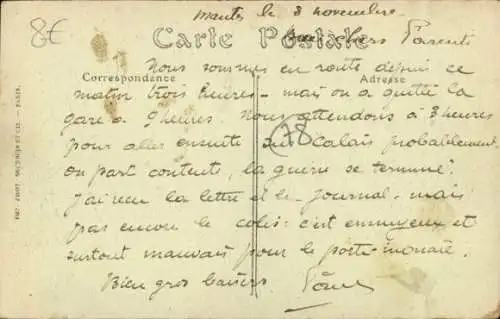 8€
Mantes le 3 novembre.
Carte Postale
chers Parents
Correspondance
Adresse
Nous sommes en route depuis ce
matin trois heures - mais on a quitté la
gare a 9 heures. Nous attendons à 3 heures
pour aller ensuite sur Calais probablement.
78
on part contents, la guerre se termine.
J'ai reçu la lettre et le Journal. mais
pas encore le colis. c'est ennuyeux et
surtout mauvais pour le porte-monnaie.
Bien gros baisers.